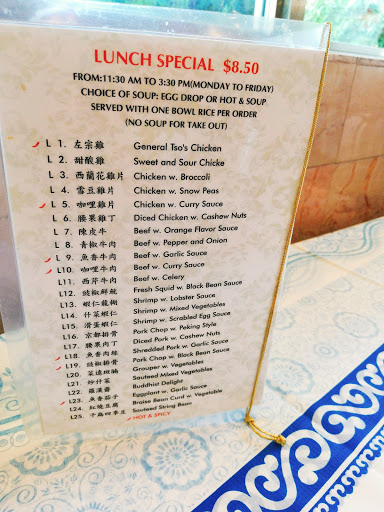 LUNCH SPECIAL $8.50
FROM:11:30 AM TO 3:30 PM(MONDAY TO FRIDAY)
CHOICE OF SOUP: EGG DROP OR HOT & SOUP
SERVED WITH ONE BOWL RICE PER ORDER
(NO SOUP FOR TAKE OUT)
L 1. 左宗雞 General Tso's Chicken
L 2. 甜酸雞 Sweet and Sour Chicke
L 3. 西蘭花雞片 Chicken w. Broccoli
L 4. 雪豆雞片 Chicken w. Snow Peas
L 5. 咖哩雞片 Chicken w. Curry Sauce
L 6. 腰果雞丁 Diced Chicken w. Cashew Nuts
L 7. 陳皮牛 Beef w. Orange Flavor Sauce
L 8. 青椒牛肉 Beef w. Pepper and Onion
L 9. 魚香牛肉 Beef w. Garlic Sauce
L10. 咖哩牛肉 Beef w. Curry Sauce
L11. 西芹牛肉 Beef w. Celery
L12. 豉椒鮮魷 Fresh Squid w. Black Bean Sauce
L13. 蝦仁龍糊 Shrimp w. Lobster Sauce
L14. 什菜蝦仁 Shrimp w. Mixed Vegetables
L15. 滑蛋蝦仁 Shrimp w. Scrabled Egg Sauce
L16. 京都排骨 Pork Chop w. Peking Style
L17. 腰果肉丁 Diced Pork w. Cashew Nuts
L18. 魚香肉絲 Shredded Pork w. Garlic Sauce
L19. 豉椒排骨 Pork Chop w. Black Bean Sauce
L20. 菜遠斑腩 Grouper w. Vegetables
L21. 炒什菜 Sauteed Mixed Vegetables
L22. 羅漢齋 Buddhist Delight
L23. 魚香茄子 Eggplant w. Garlic Sauce
L24. 紅燒豆腐 Braise Bean Curd w. Vegetable
L25. 干扁四季豆 Sauteed String Bean
HOT & SPICY